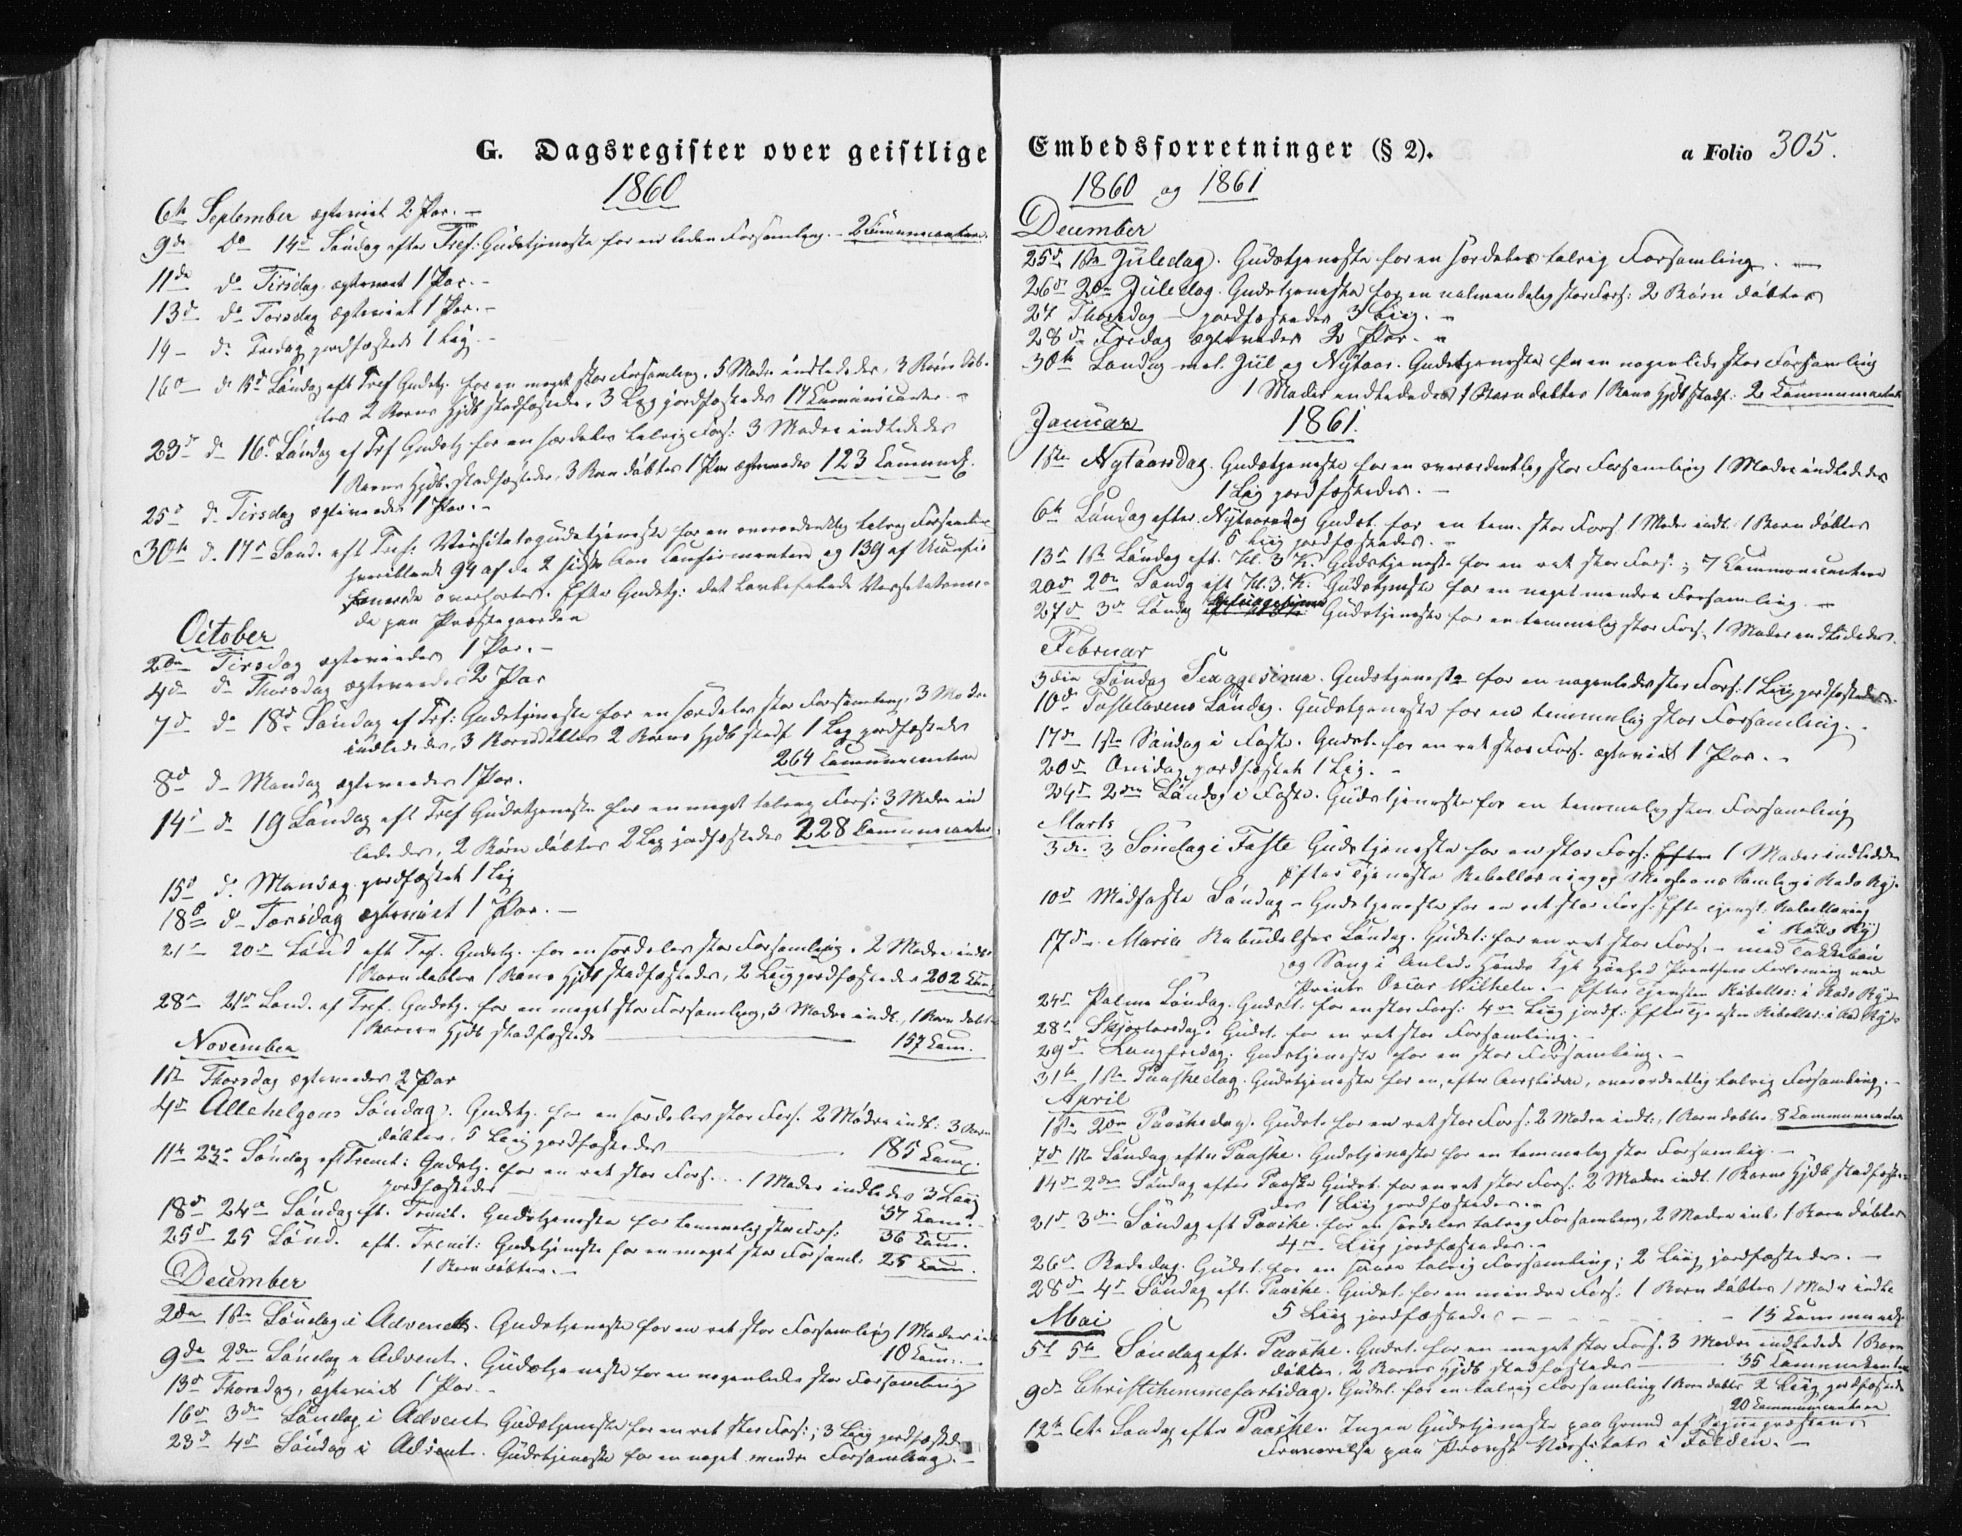 G. Dagsregister over geistlige
1860
6te September ægteviet 2 Par. -
9de do 14d Søndag efter Tref: Gudstjeneste for en liden Forsamling. - 2 Communicantere.
11de do Tirsdag ægteviet 1 Par. -
13d do Torsdag ægteviet 1 Par. -
19 - do jordfæstede 1 Lig. -
16d - do 15d Søndag eft Tref Gudstj. for en meget stor Forsamling. 5 Mødre indlededes, 3 Børn døb-
tes 2 Børns Hjdb stadfæstede, 3 Lig jordfæstedes 17 Communicanter. -
23d do 16d Søndag ef Trf Gudstj for en særdeles talrig Fors: 3 Mødre indlededes
1 Barns Hjdb. stadfæstedes, 3 Børn døbtes 1 Par ægteviedes 123 Communik.
25d do Tirsdag ægteviedes 1 Par. -
30te d. 17d Sønd. eft Tref: Visitatsgudstjeneste for en overordentlig talrig Forsamling
hvoriblandt 94 af de 2 sidste Aars Confirmantere og 139 af Uconfir-
merede overhørtes. Efter Gudstj: det
de paa Præstegaarden
October
2den Tirsdag ægteviedes 1 Par. -
4de do Thorsdag ægteviedes 2 Par
7d do 18d Søndag ef Trf: Gudstjeneste for en særdeles stor Forsamling, 3 Mødre
indlededes, 3 Børn døbtes 2 Børns Hjdb stadf 1 Lig jordfæstedes
264 Communicantere
8d d - Mandag ægteviedes 1 Par.
14d - do 19 Søndag eft Tref Gudstjeneste for en meget talrig Fors: 3 Mødre ind
lededes, 2 Børn døbtes 2 Lig jordfæstedes 228 Communicanter.
15d d. Mandag jordfæstet 1 Lig
18d d - Torsdag ægteviet 1 Par. -
21 - 20de Sønd eft Tref. Gudstj. for en særdeles stor Forsamling. 2 Mødre indl.
1 Barn døbtes 1 Barns Hjdb stadfæstedes, 2 Liig jordfæstedes 202 Com
28de 21de Sønd. ef Tref. Gudstj. for en meget stor Forsamling, 3 Mødre indl., 1 Barn døbtes
1 Barns Hjdb stadfæstedes 157 Com.
November
1ste Thorsdag ægteviedes 2 Par
4de Allehelgens Søndag. Gudstj. for en særdeles stor Fors. 2 Mødre indl: 3 Børn
døbtes, 5 Liig jordfæstedes 185 Com.
11te 23de Søndag eft Trinit: Gudstj. for en ret stor Fors. .. 1 Moder indledes 3 Liig
jordfæstedes 37 Com.
18de 24de Søndag eft. Trinit. Gudstjeneste for temmelig stor Fors: 36 Com.
25de 25 Sønd. eft. Trinit: Gudstjeneste for en meget stor Forsaml. 25 Com.
1 Barn døbtes. -
December
2den 1ste Søndag i Advent. Gudstjeneste for en ret stor Forsamling 1 Moder ind
10 Com: -
9de 2den Søndag i Advent. Gudstjeneste for en nogenledes stor Forsamling
13d Thorsdag, ægteviet 1 Par. -
16de 3die Søndag i Advent Gudstjeneste for en ret stor Fors:; 3 Liig jordfæstedes
23d 4de Søndag i Advent. Gudstjeneste for en noget mindre Forsamling. -
Embedsforretninger (§ 2).
a Folio 305.
1860 og 1861
December
25de 1ste Juledag. Gudstjeneste for en særdeles talrig Forsamling. -
26de 2den Juledag. Gudstjeneste for en stor Fors: 2 Børn døbtes
27 Thorsdag - jordfæstedes 3 Liig. -
28de Fredag ægteviedes 2 Par. -
30te Søndag mel. Jul og Nytaar. Gudstjeneste for en nogenledes stor Forsamling
1 Moder indlededes 1 Barn døbtes 1 Barns Hjdb stadf: 2 Communicanter
Januar 1861.
1ste Nytaarsdag. Gudstjeneste for en overordentlig stor Forsamling 1 Moder indlededes
1 Liig jordfæstedes. -
6te Søndag efter Nytaarsdag Gudst. for en tem. stor Fors. 1 Moder indl. 1 Barn døbtes
5 Liig jordfæstedes. -
13de 1ste Søndag eft. H. 3 K. Gudstjeneste for en ret stor Fors.; 7 Communicantere
20de 2den Søndg eft H. 3. K. Gudstjeneste for en noget mindre Forsamling. -
27de 3de Søndag Gudstjeneste for en temmelig stor Fors. 1 Moder indlededes.
Februar
3die Søndag Sexagesima. Gudstjeneste for en nogenledes stor Fors: 1 Liig jordfæstedes. -
10de Fastelavens Søndag. Gudstjeneste for en temmelig stor Forsamling. -
17de 1ste Søndag i Faste. Gudst. for en ret stor Fors. ægteviet 1 Par. -
20de Onsdag jordfæstet 1 Lig. -
24de 2den Søndag i Faste. Gudstjeneste for en temmelig stor Forsamling
Marts
3die 3 Søndag i Faste Gudstjeneste for en stor Fors: Efter 1 Moder indlededes
Efter Tjeneste Bibellæsning og
10de Midfaste Søndag - Gudstjeneste for en ret stor Fors: Efter Tjenest. Bibellæsning
17de Maria Bebudelses Søndag. Gudst: for en ret stor Fors. - med Takkebøn
og Sang i Anledn. Hendes Kgl Høihed Prinsessens Forløsning med
Prints Oscar Wilhelm. - Efter Tjenesten Bibellæs:
24de Palme Søndag. Gudst. for en stor Fors: 4re Liig jordf: Efter Tjenesten Bibellæs:
28de Skjærtorsdag. Gudst. for en ret stor Forsamling. -
29de Langfredag. Gudstjeneste for en stor Forsamling. -
31te 1ste Paaskedag. Gudstjeneste for en, efter Aarstiden, overordentlig talrig Forsamling. -
April
1ste 2den Paaskedag. Gudst. for en ret stor Fors: 2 Mødre indl:, 1 Barn døbtes. 8 Communicanter
7de 1ste Søndag efter Paaske. Gudstjeneste for en temmelig stor Forsamling. -
14de 2den Søndag efter Paaske Gudst. for en ret stor Fors. 2 Mødre indl. 1 Barns Hjdb stadfæste-
des 1 Liig jordfæstedes. -
21de 3die Søndag eft Paaske. for en særdeles talrig Forsamling, 2 Mødre inl. 1 Barn døbtes
4re Liig jordfæstedes. -
26de Bededag. Gudst. for en talrig Forsamling; 2 Liig jordfæstedes. -
28de 4de Søndag eft. Paaske. Gudst. for en mindre Fors: 1 Barn døbtes 1 Moder indle
5 Liig jordfæstedes - 13 Communic
Mai
5te 5te Søndag eft. Paaske. Gudst. for en meget stor Fors. 3 Mødre indledede 1 Barn
døbtes. 2 Børns Hjdb stadfæstedes - 35 Communicanter
9de Christi himmelfartsdag. Gudst. for en talrig Forsamling 1 Barn døbtes 2 Liig jordfæstede
20 Communicantere
12te 6te Søndag efter Paaske. Ingen Gudstjeneste paa Grund af Sognepræstens
Fraværelse paa Provste Visitats i Folden. -